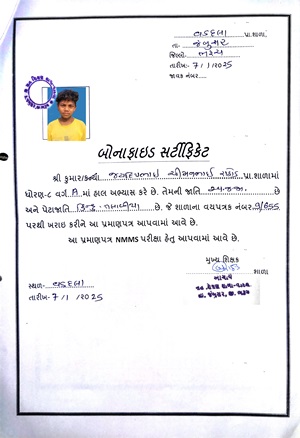 વડદલા પ્રા.શાળા
તા:- જંબુસર
જિલ્લો:- ભરૂચ
તારીખ:- 7/1/2025
જાવક નંબર
બોનાફાઇડ સર્ટીફિકેટ
શ્રી કુમાર/કન્યા જયદીપભાઇ રાઠોડ પ્રા.શાળામાં
ધોરણ-૮ વર્ગ A માં હાલ અભ્યાસ કરે છે. તેમની જાતિ છે
અને પેટાજાતિ હિન્દુ છે. જે શાળાના વયપત્રક નંબર
પરથી ખરાઇ કરીને આ પ્રમાણપત્ર આપવામાં આવે છે.
આ પ્રમાણપત્ર NMMS પરીક્ષા હેતુ આપવામાં આવે છે.
મુખ્ય શિક્ષક
શાળા
આચાર્ય
સ્થળ:- વડદલા
તા. જંબુસર, જી. ભરૂચ
તારીખ:- 7/1/2025